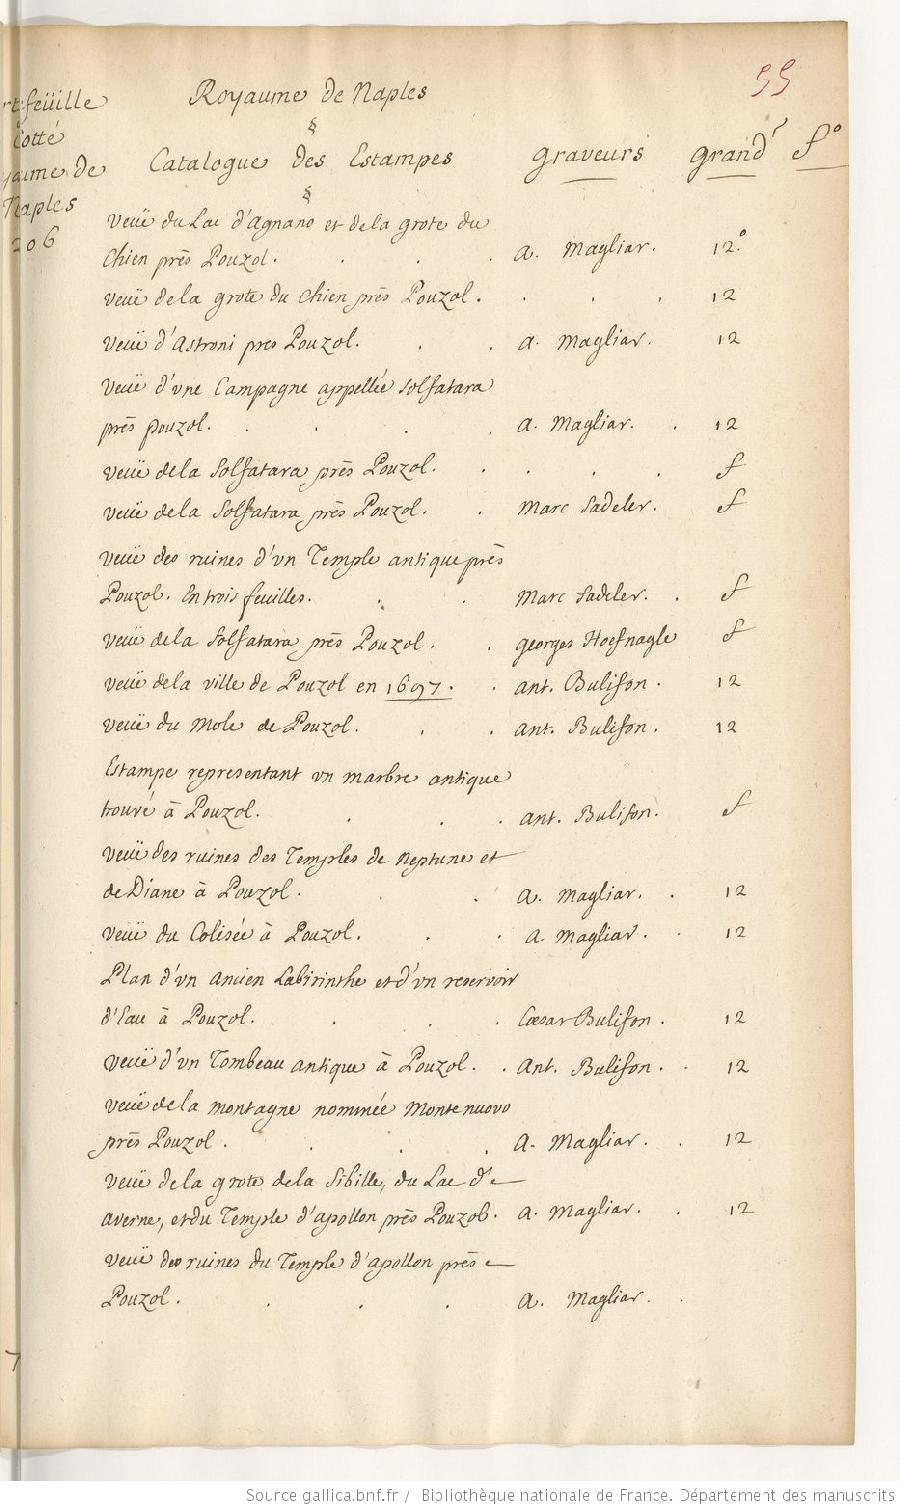 55
Royaume de Naples
rtefeüille
Cotté
yaume de
Naples
206
§
Catalogue des Estampes graveurs grandr fo
§
veuë du Lac d'Agnano et de la grote du
Chien près Pouzol. . . . a. Magliar. 12.o
veuë de la grote du Chien près Pouzol. . . . 12
veuë d'Astroni pres Pouzol. . . a. Magliar. 12
veuë d'une Campagne appellée Solfatara
près pouzol. . . . . a. Magliar. . 12
veuë de la Solfatara près Pouzol. . . . . f
veuë de la Solfatara près Pouzol. . Marc Sadeler. f
veuë des ruines d'un Temple antique près
Pouzol. En trois feuilles. . . Marc Sadeler. . f
veuë de la Solfatara près Pouzol. . georges Hoefnagle f
veuë de la ville de Pouzol en 1697. . ant. Bulifon. 12
veuë du Mole de Pouzol. . . ant. Bulifon. 12
Estampe representant un marbre antique
trouvé à Pouzol. . . . ant. Bulifon. f
veuë des ruines des Temples de Neptune et
de Diane à Pouzol. . . a. Magliar. . 12
veuë du Colisée à Pouzol. . . a. Magliar. . 12
Plan d'un ancien Labirinthe et d'un reservoir
d'Eau à Pouzol. . . . Cæsar Bulifon. 12
veuë d'un Tombeau antique à Pouzol. . Ant. Bulifon. . 12
veuë de la montagne nommée Montenuovo
près Pouzol. . . . a. Magliar. . 12
veuë de la grote de la Sibille, du Lac d'e
averne, et du Temple d'apollon près Pouzol. a. Magliar. . 12
veuë des ruines du Temple d'apollon près
Pouzol. . . . a. Magliar. .
7
Source gallica.bnf.fr / Bibliothèque nationale de France. Département des manuscrits